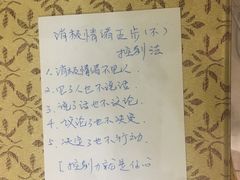 消极情绪正步(不)
控制法
1. 消极情绪不见人
2. 见了人也不说话.
3. 说了话也不议论
4. 议论了也不决定
5. 决定了也不行动
[控制]就是